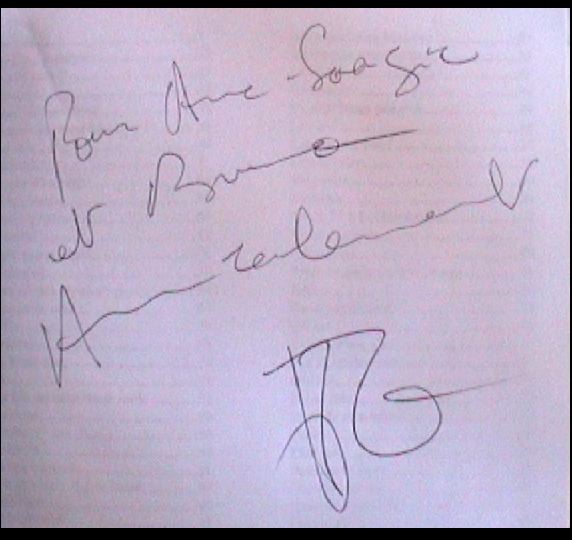 Pour Anne-Sophie
et Bruno
Amicalement